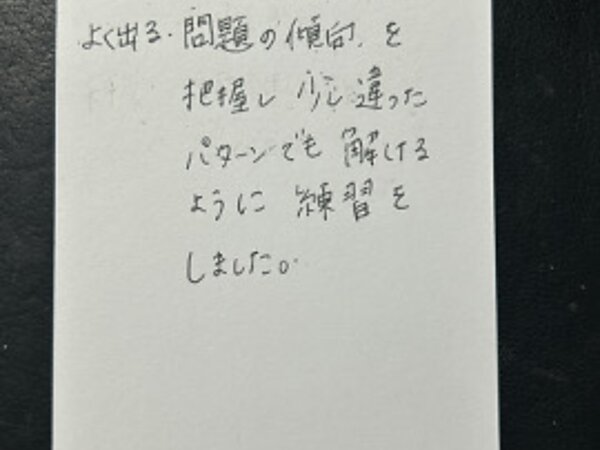 よく出る・問題の傾向を
把握し 少し違った
パターンでも 解ける
ように 練習を
しました。